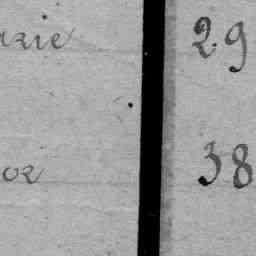 arie 29
or 38